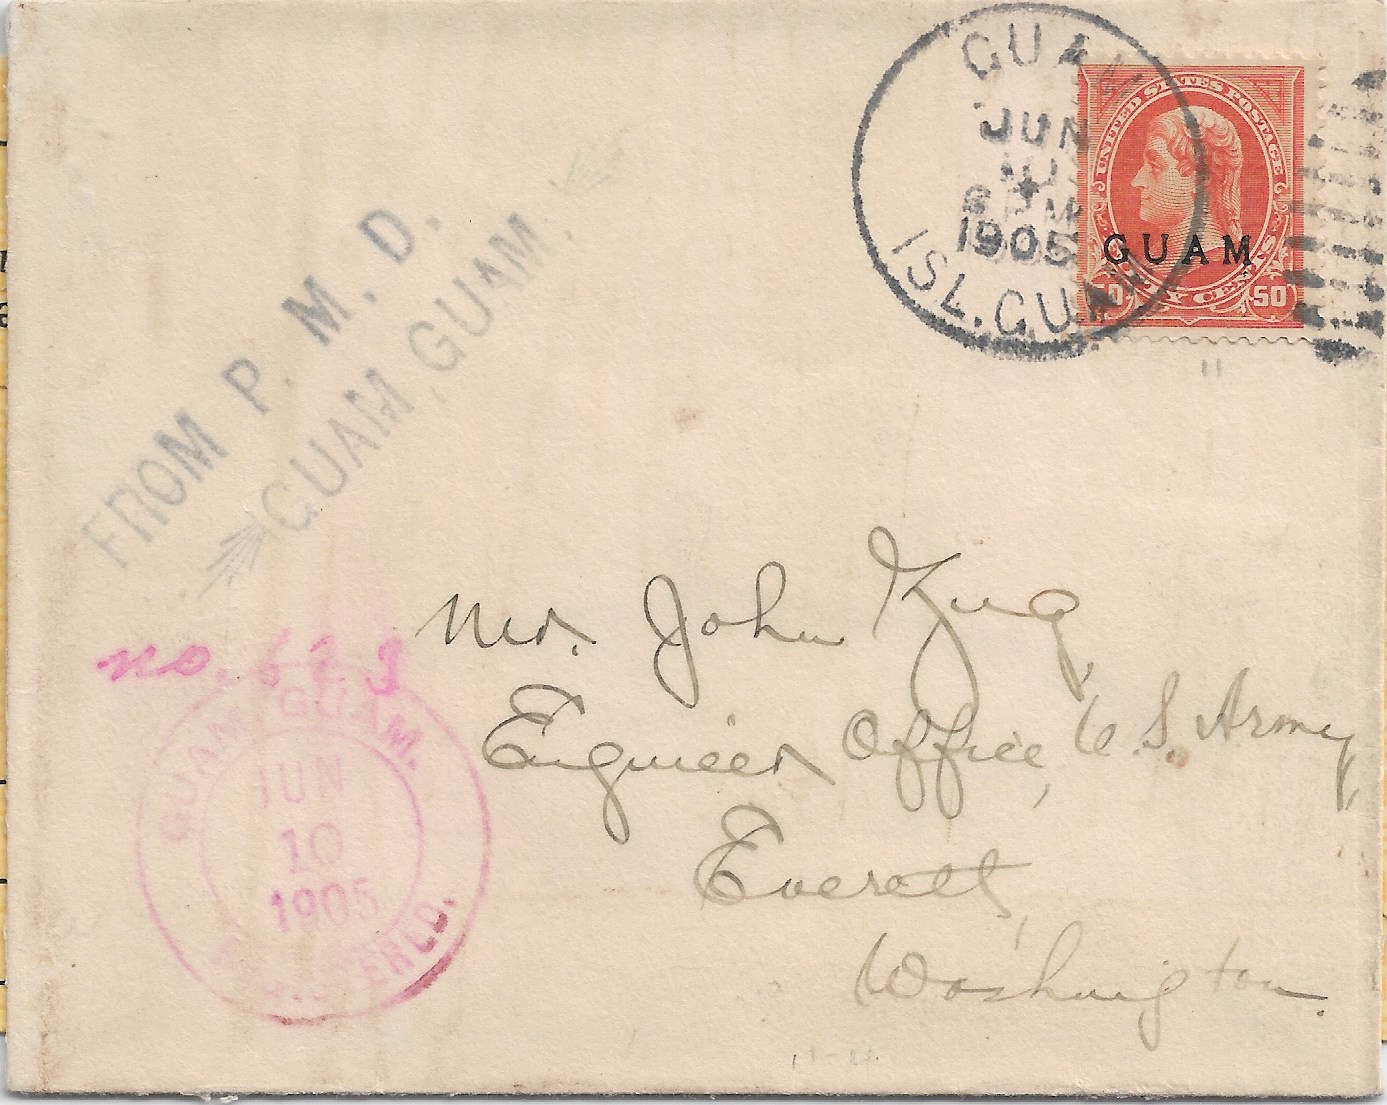 GUAM
JUN
10
6 PM
1905
ISL. GUAM
UNITED STATES POSTAGE
GUAM
50 FIFTY CENTS 50
FROM P. M. D.
GUAM, GUAM.
No. 673
GUAM, GUAM.
JUN
10
1905
REGISTERED.
Mr. John Zug,
Engineer Office, U.S. Army,
Everett,
Washington.